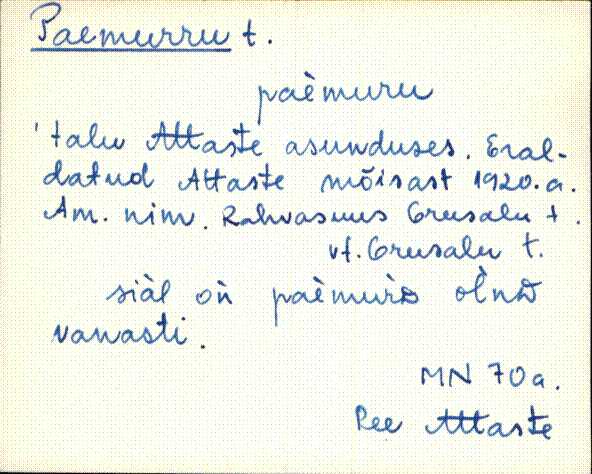 Paemurru t.
paèmuru
'talu Attaste asunduses. Eral-
datud Attaste mõisast 1920. a.
Am. nim. Rahvasuus Orusalu t.
vt. Orusalu t.
siàl oǹ paèmuŕ̀ oĺnD
vanasti.
MN 70 a.
Pee Attaste